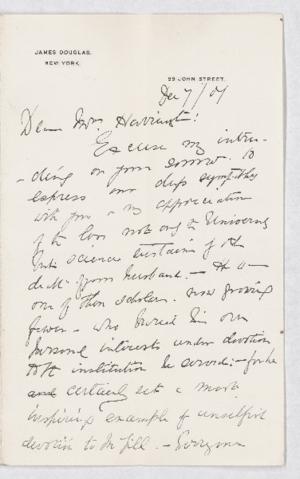 JAMES DOUGLAS.
NEW YORK.
99 JOHN STREET.
Dec 7/09
Dear Mrs Harrington!
Excuse my intru-
-ding on your sorrow to
express our deep sympathy
with you & my appreciation
of the loss not only the University
but science sustains
death of your husband. - He
one of those scholars, now growing
fewer - who buried his own
personal interests under devotion
to the institution he served: - for he
and certainly set a most
inspiring example of unselfish
devotion to McGill. - Everyone